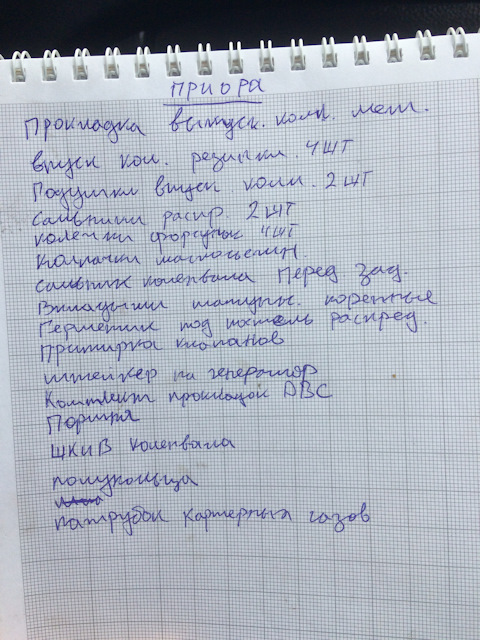 ПРИОРА
Прокладка выпуск. колл. мет.
впуск кол. резинки. 4 шт
Подушки впуск колл. 2 шт
Сальники распр. 2 шт
колечки форсунок 4 шт
Колпачки маслосъемн.
сальник коленвала Перед зад.
Вкладыши шатунн. коренные
Герметик под постель распред.
Притирка клапанов
натяжер на генератор
Комплект прокладок ДВС
Поршня
шкив коленвала
полукольца
патрубок картерных газов